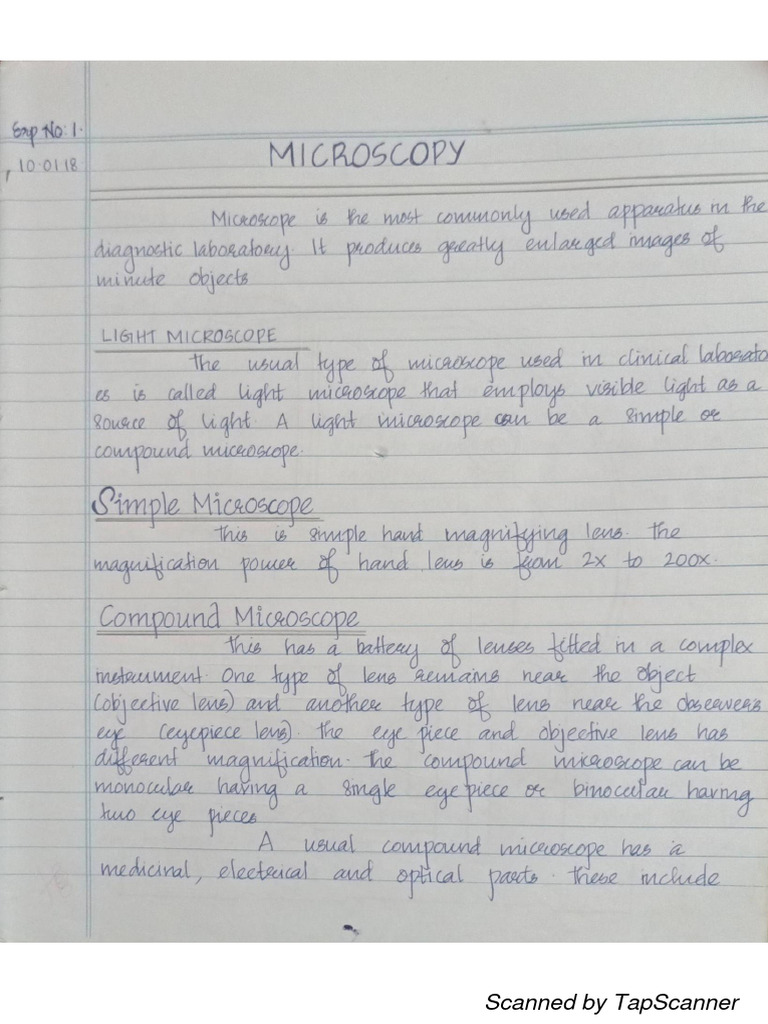 Exp No: 1.
10.01 18
MICROSCOPY
Microscope is the most commonly used apparatus in the
diagnostic laboratory. It produces greatly enlarged images of
minute objects
LIGHT MICROSCOPE
The usual type of microscope used in clinical laborato
es is called light microscope that employs visible light as a
source of light. A light microscope can be a simple or
compound microscope.
Simple Microscope
This is simple hand magnifying lens. The
magnification power of hand lens is from 2x to 200x.
Compound Microscope
This has a battery of lenses fitted in a complex
instrument One type of lens remains near the object
(objective lens) and another type of lens near the observers
eye (eyepiece lens). The eye piece and objective lens has
different magnification. The compound microscope can be
monocular having a single eye piece or binocular having
two eye pieces
A usual compound microscope has a
medicinal, electrical and optical parts. These include
Scanned by TapScanner